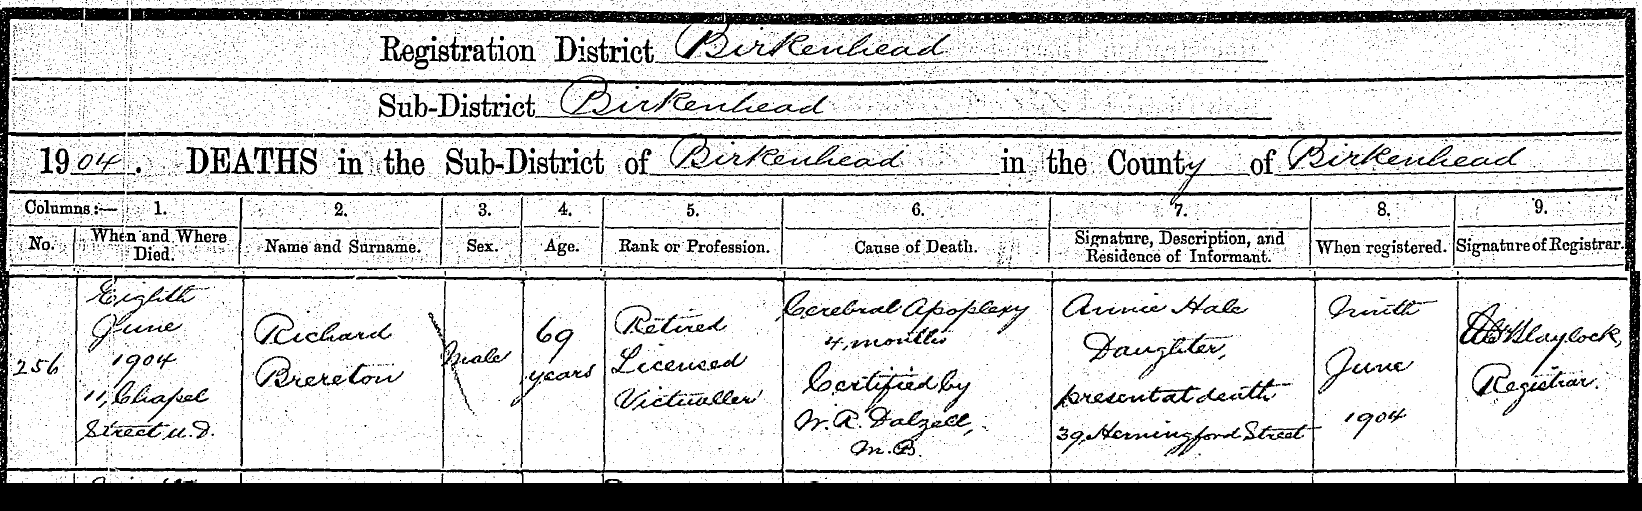 Registration District Birkenhead
Sub-District Birkenhead
1904. DEATHS in the Sub-District of Birkenhead in the County of Birkenhead
Columns:— 1. 2. 3. 4. 5. 6. 7. 8. 9.
No. When and Where Died. Name and Surname. Sex. Age. Rank or Profession. Cause of Death. Signature, Description, and Residence of Informant. When registered. Signature of Registrar.
256
Eighth
June
1904
11, Chapel
Street u.d.
Richard
Brereton
Male
69
years
Retired
Licensed
Victualler
Cerebral Apoplexy
4 months
Certified by
W. R. Dalzell,
M.B.
Annie Hale
Daughter,
present at death
39, Hemingford Street
Ninth
June
1904
Blaylock,
Registrar.